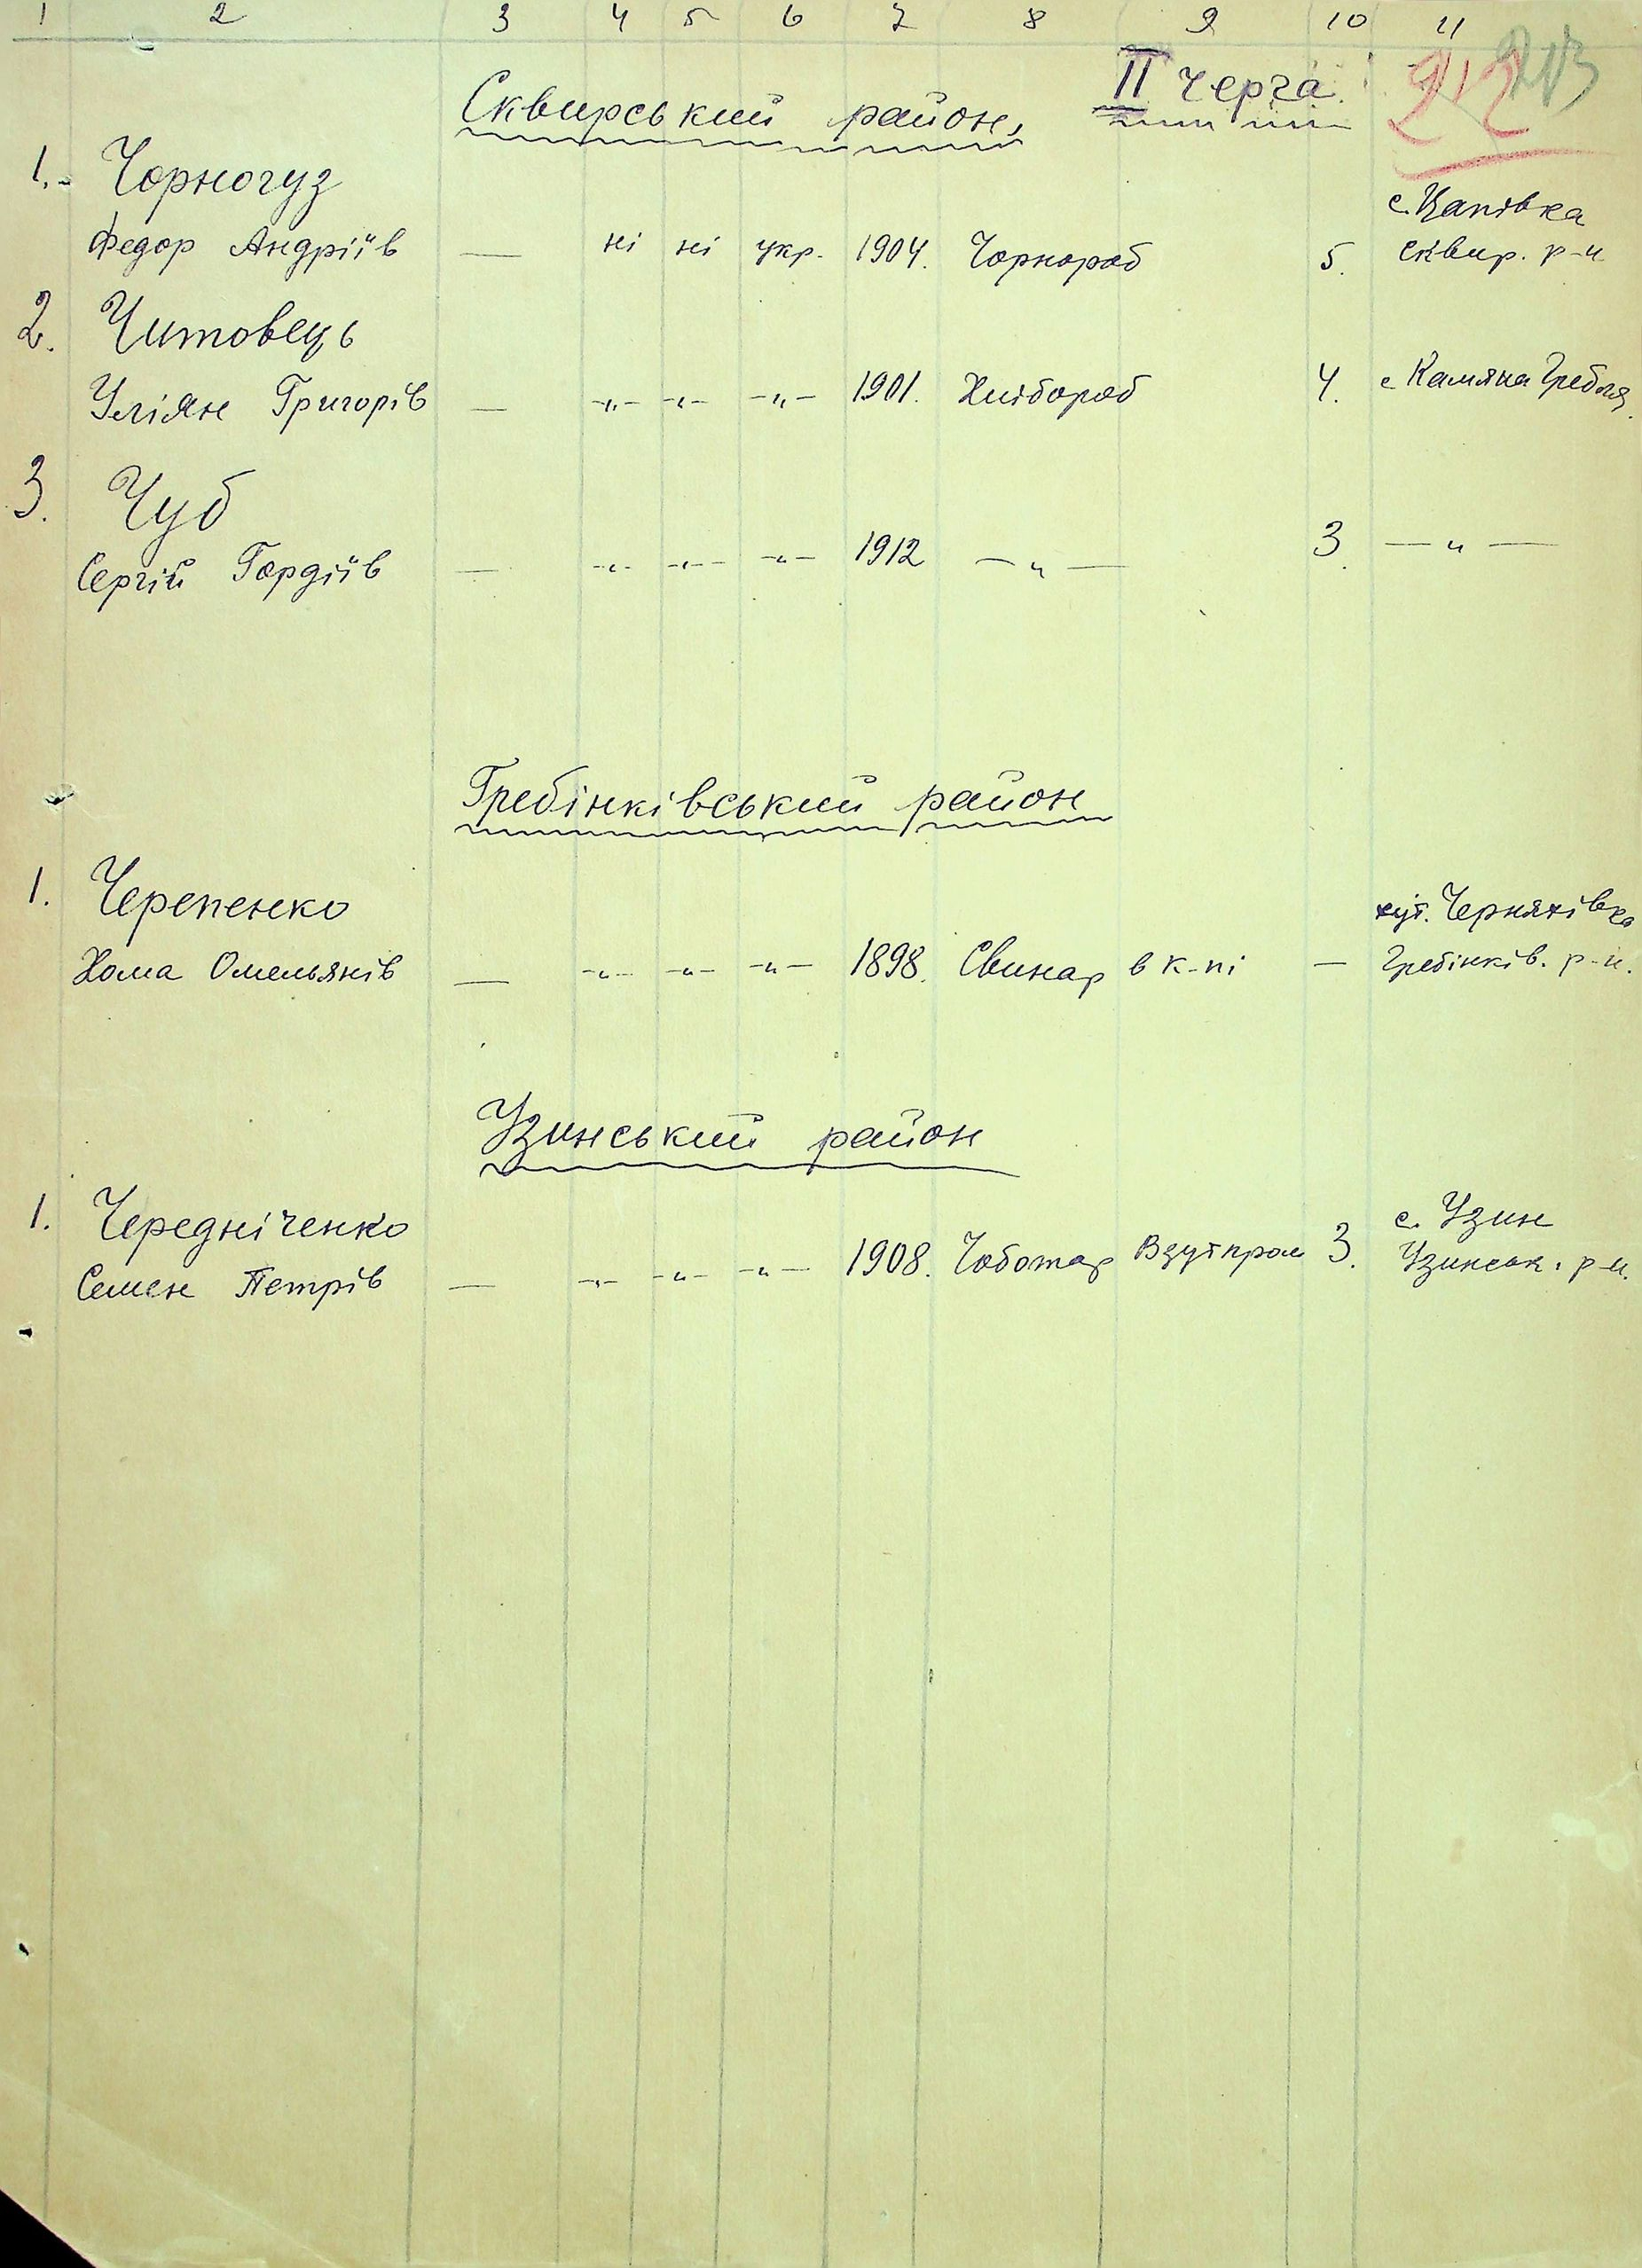 1 2 3 4 5 6 7 8 9 10 11
213
212
II Черга
Сквирський район,
1. Чорногуз
с. Цапівка
Федор Андріїв — ні ні укр. 1904. Чорнороб 5. Сквир. р-н
2. Читовець
Уліян Григорів — -„- -„- -„- 1901. Хлібороб 4. с Камяна Гребля.
3. Чуб
Сергій Гордіїв — -„- -„- -„- 1912 —„— 3. —„—
Гребінківський район
1. Черепенко
хут. Черняхівка
Хома Омельянів — -„- -„- -„- 1898. Свинар в к-пі — Гребінків. р-н.
Узинський район
1. Чередніченко
с. Узин
Семен Петрів — -„- -„- -„- 1908. Чоботар Взутпром 3. Узинськ. р-н.